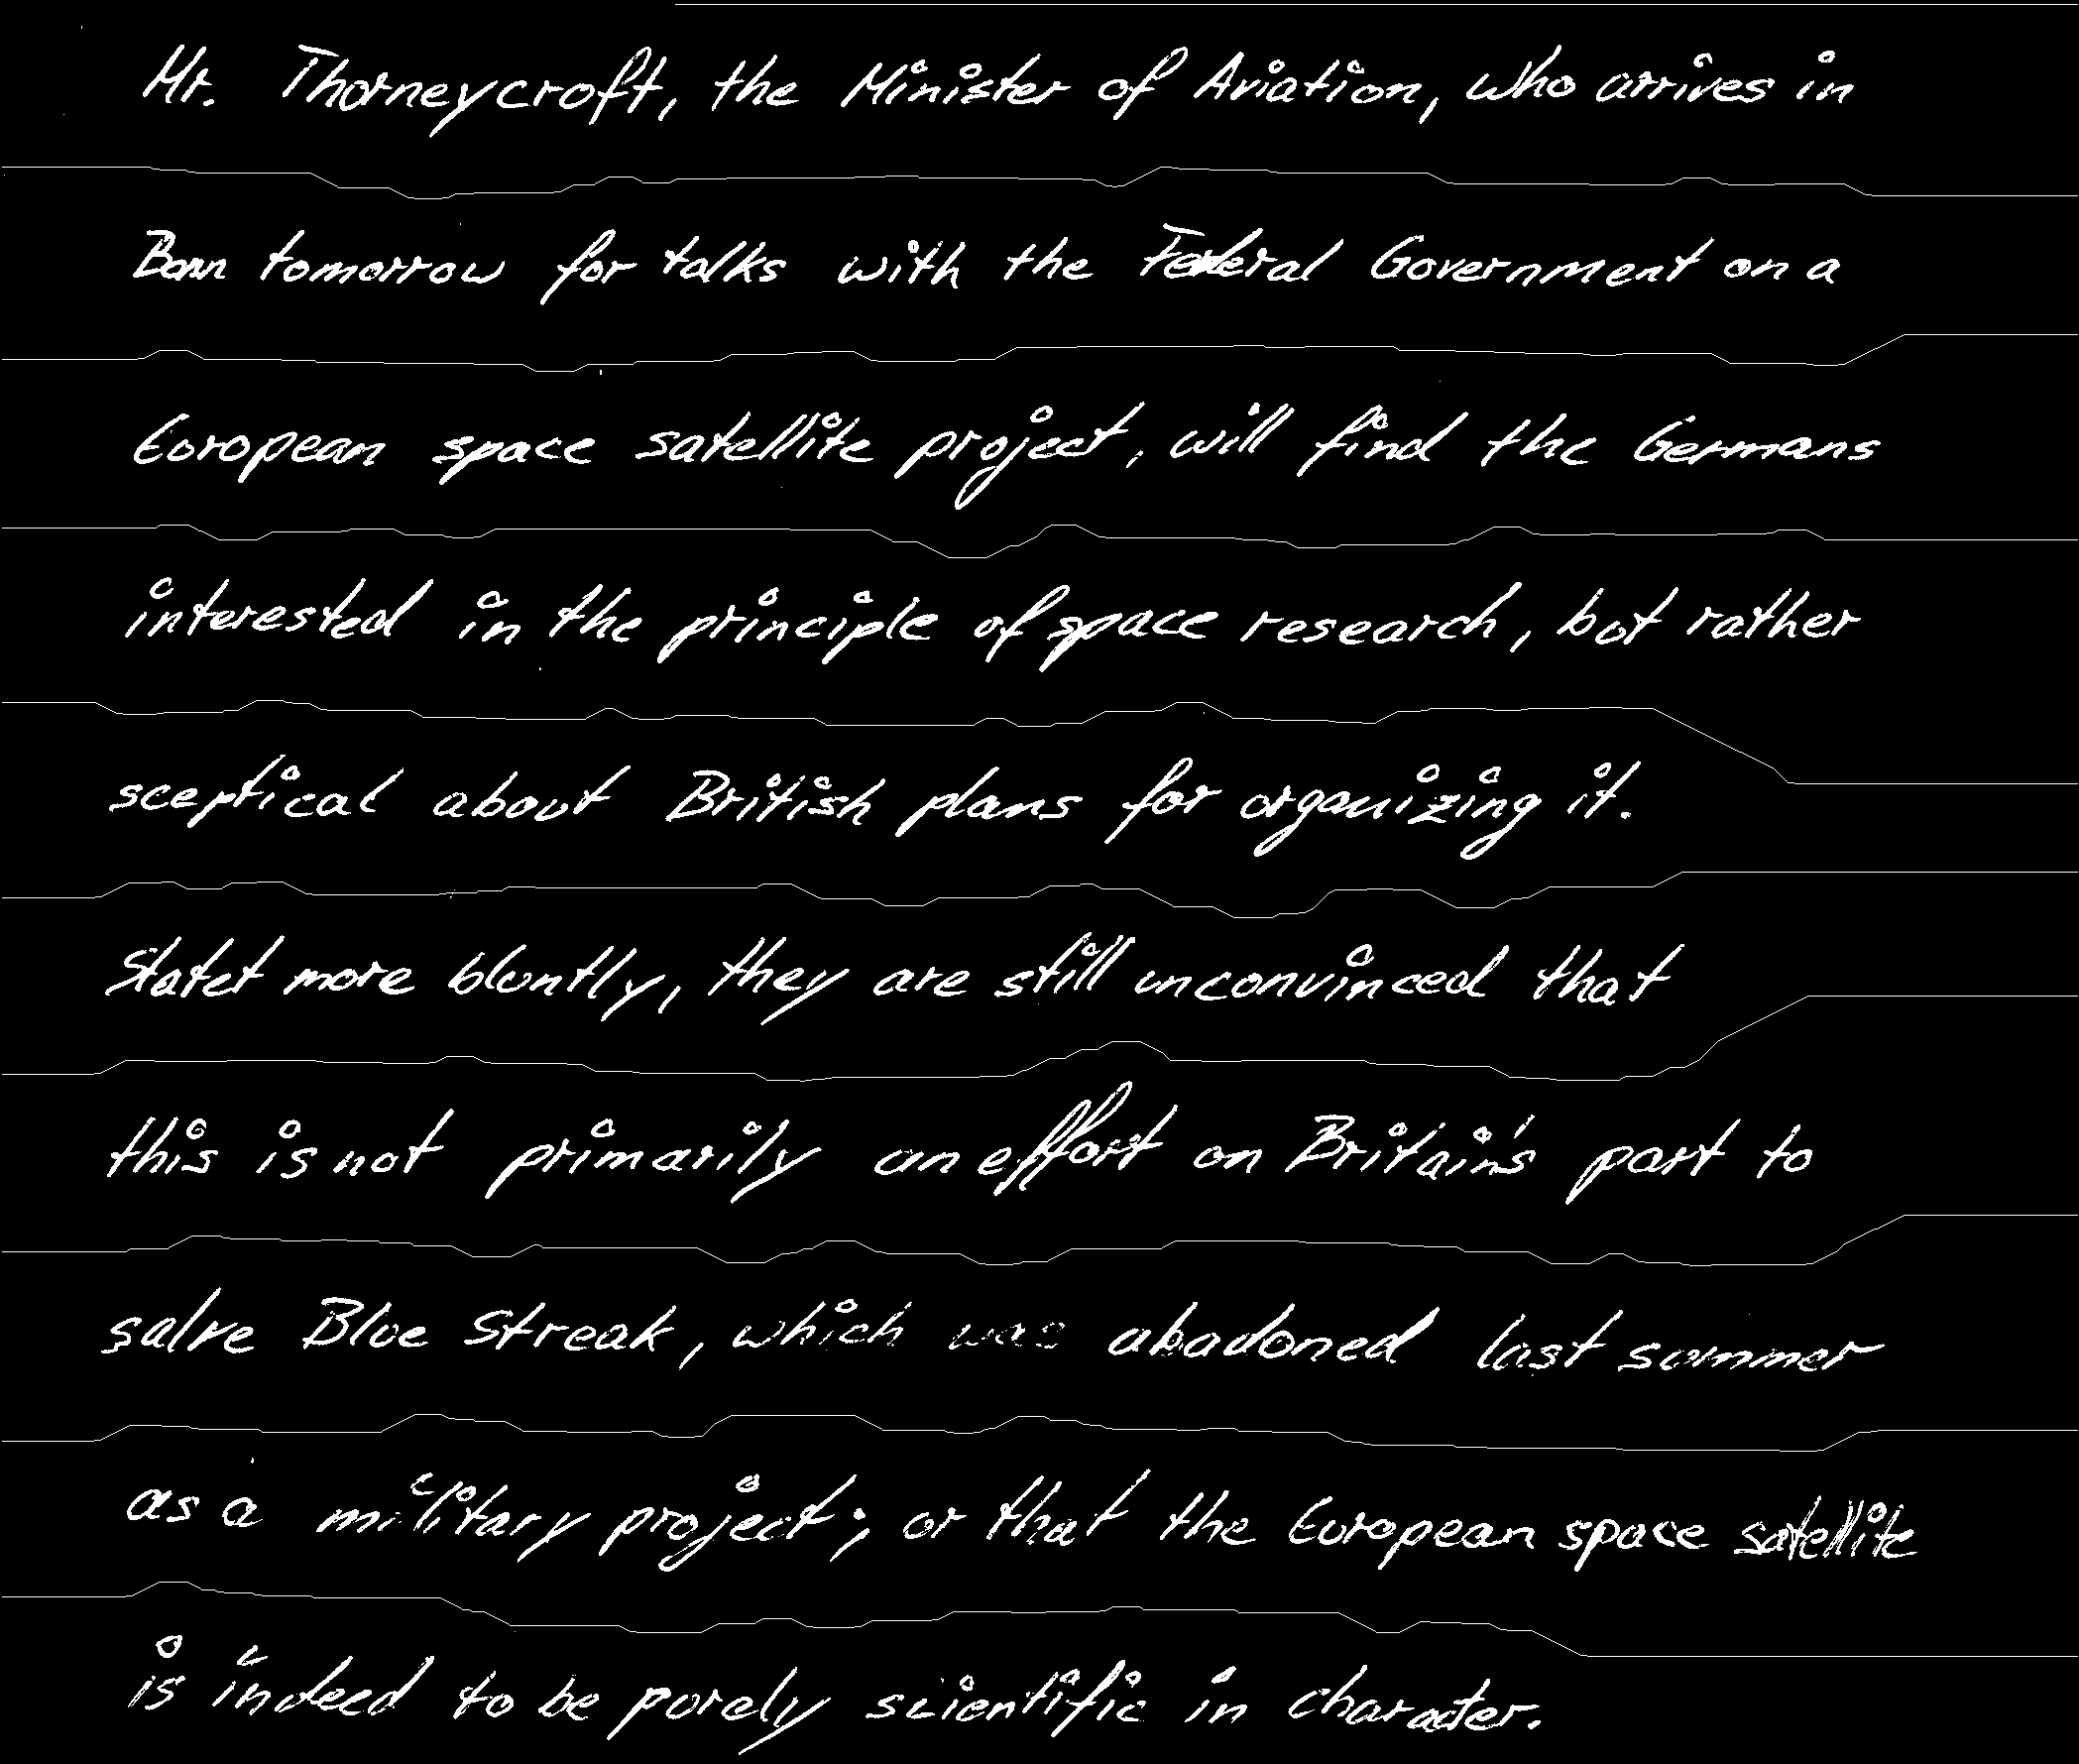 Mr. Thorneycroft, the Minister of Aviation, who arrives in
Bonn tomorrow for talks with the Federal Government on a
European space satellite project, will find the Germans
interested in the principle of space research, but rather
sceptical about British plans for organizing it.
Statet more bluntly, they are still unconvinced that
this is not primarily an effort on Britain's part to
salve Blue Streak, which was abadoned last summer
as a military project; or that the European space satellite
is indeed to be purely scientific in character.